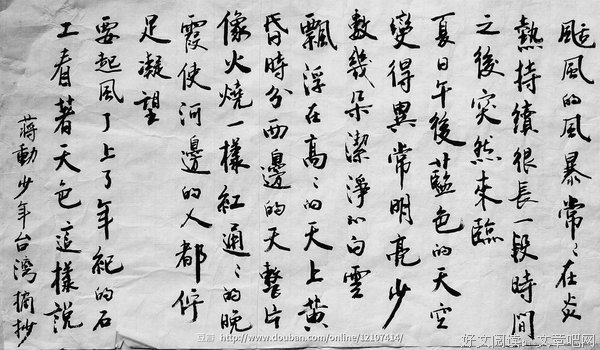 颱風的風暴常〻在炎
熱持續很長一段時間
之後突然來臨
夏日午後藍色的天空
變得異常明亮少
數幾朵潔淨的白雲
飄浮在高〻的天上黃
昏時分西邊的天整片
像火燒一樣紅通〻的晚
霞使河邊的人都佇
足凝望
要起風了上了年紀的石
工看著天色這樣說
蔣勳少年台灣摘抄
豆瓣 http://www.douban.com/online/12197414/
好文阅读 - 文章吧网